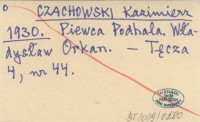 CZACHOWSKI Kazimierz
1930. Piewca Podhala. Wła-
dysław Orkan. — Tęcza
4, nr 44.